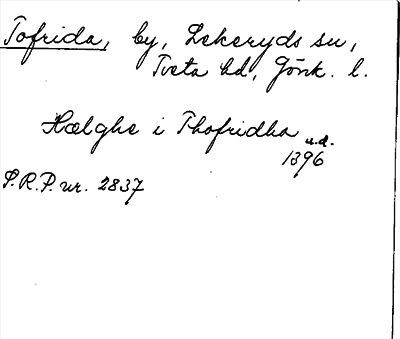 Tofrida, by, Lekeryds sn,
Tveta hd, Jönk. l.
Hælghe i Thofridha
u.d.
1396
S.R.P. nr. 2837